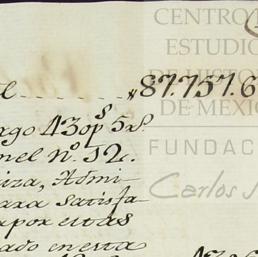 CENTRO
ESTUDIO
DE HISTOR
DE MÉXIC
FUNDAC
Carlos S
l........ $87.757.6
ago 430ps 5rs.
nel nº. 52.
iza, Admi
para satisfa
a por estas
ado en esta